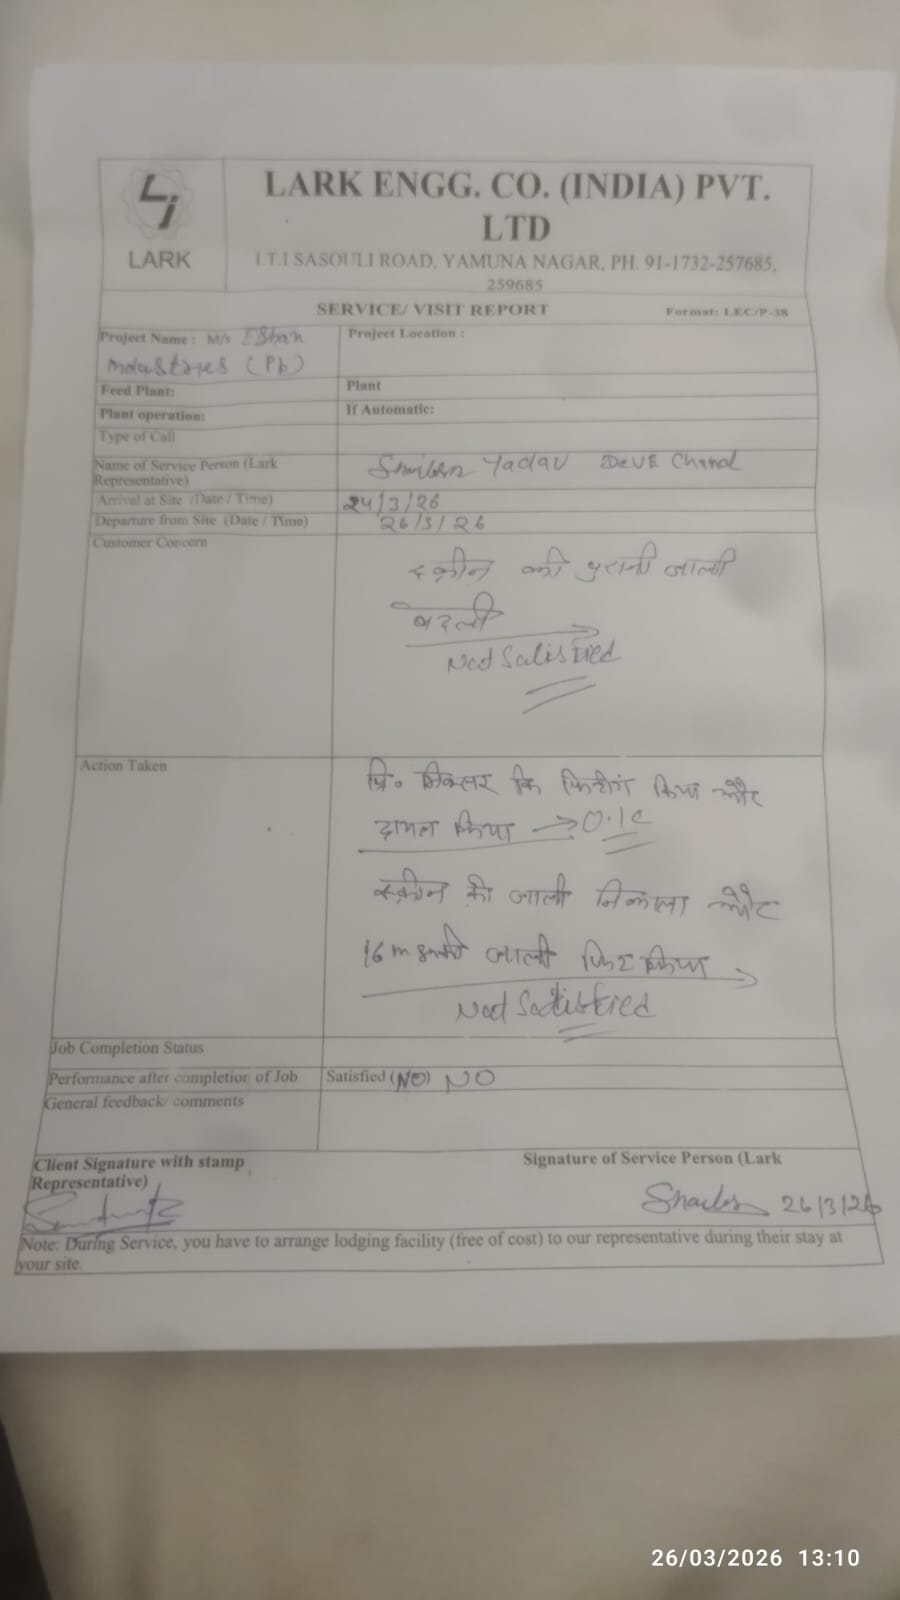 LARK ENGG. CO. (INDIA) PVT.
LTD
LARK
I.T.I SASOULI ROAD, YAMUNA NAGAR, PH. 91-1732-257685,
259685
SERVICE/ VISIT REPORT
Format: LEC/P-38
Project Name : M/s Eshan
Industries (Pb)
Project Location :
Feed Plant:
Plant
Plant operation:
If Automatic:
Type of Call
Name of Service Person (Lark
Representative)
Yadav Deve Chand
Arrival at Site (Date / Time)
24/3/26
Departure from Site (Date / Time)
26/3/26
Customer Concern
स्क्रीन की पुरानी जाली
बदली
Not Satisfied
Action Taken
प्रि. मिक्सर कि फिटींग किया और
किया → 0.1
स्क्रीन की जाली निकाला और
16 m जाली फिट किया
Not Satisfied
Job Completion Status
Performance after completion of Job
Satisfied (NO) NO
General feedback/ comments
Client Signature with stamp
Representative)
Signature of Service Person (Lark
26/3/26
Note: During Service, you have to arrange lodging facility (free of cost) to our representative during their stay at
your site.
26/03/2026 13:10